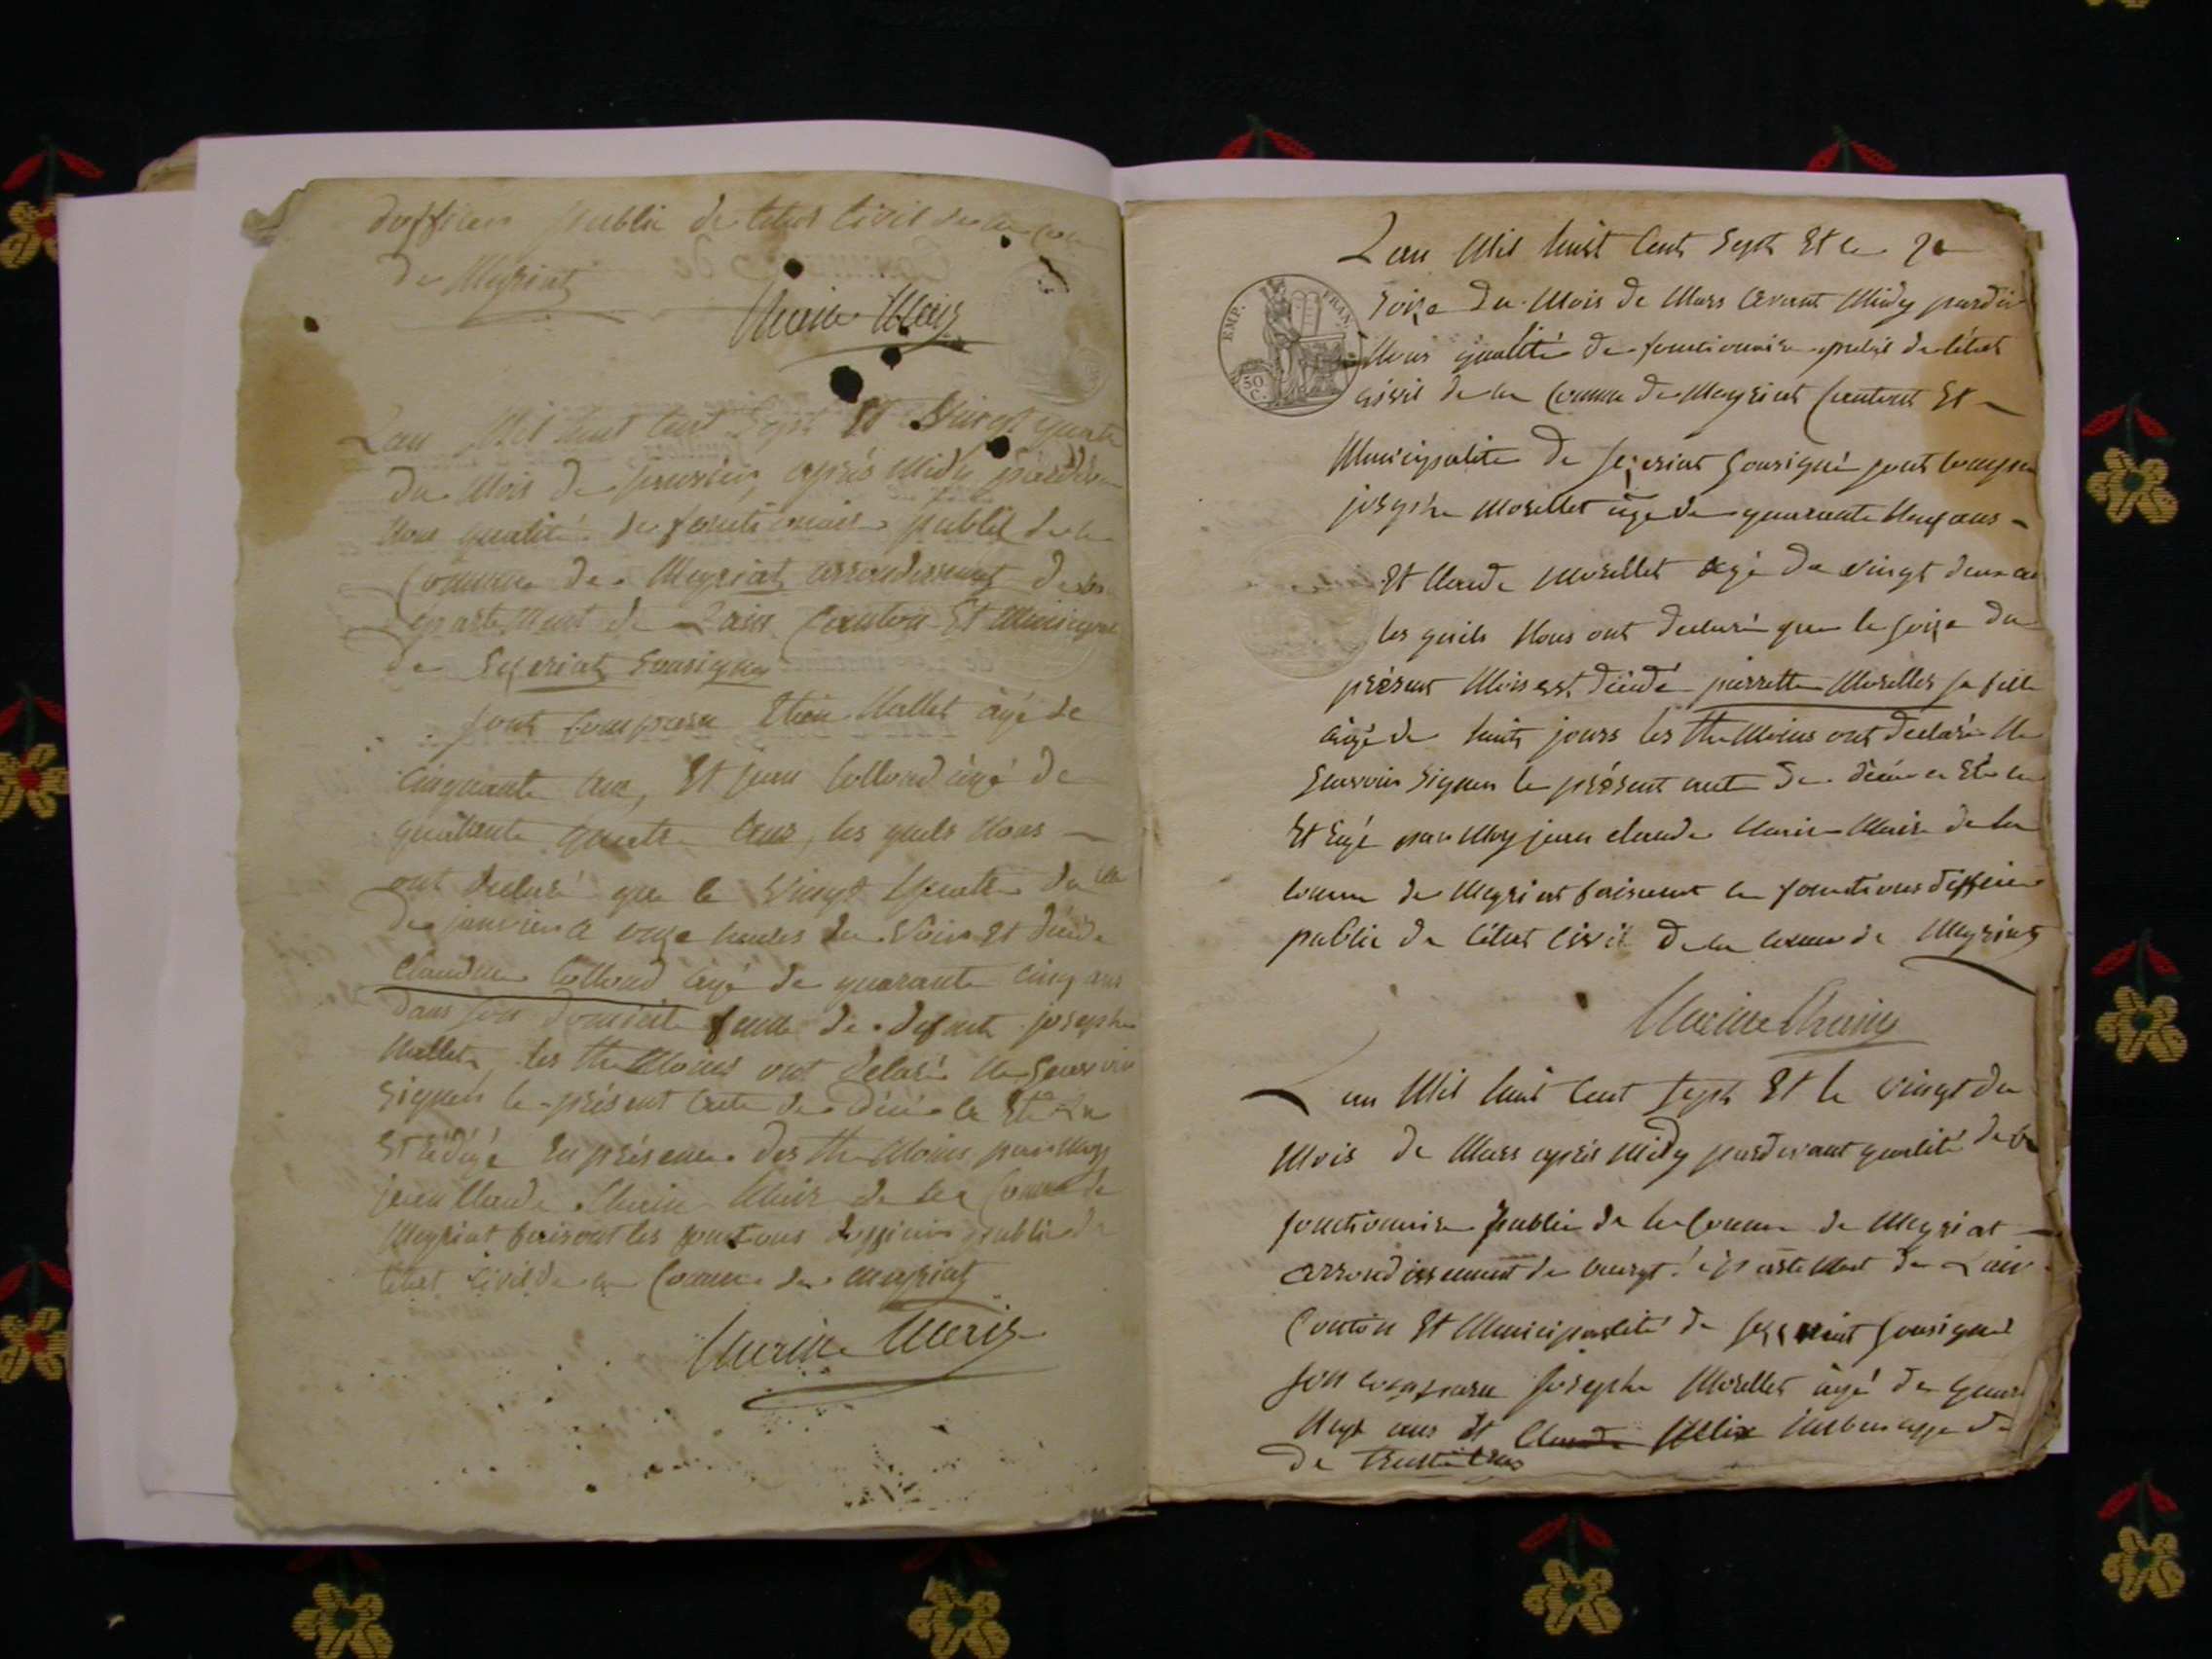 dofficier public de létat Civil de la Com
de Meyriat
Marin Maire
Lan Mil huit Cent Sept Et Vingt quatre
du Mois de janvier, après Midy pardev
Nous qualité de fonctionaire public de la
Commune de Meyriat arrondissement de
épartement de Lain Canton Et Municipal
de Seyzeriat Sousigné
Sont Comparu Etiene Mallet âgé de
Cinquante ans, Et jean Colloud âgé de
quarante quatre ans, les quels Nous
ont declaré que le Vingt quatre du
de janvier a onze heures du Soir Et décédé
Claudine Colloud âgé de quarante Cinq ans
dans Son domicile feme de defunt joseph
Mallet, les thémoins ont delaré Ne Scavoir
Signer le présent acte de décé a Eté lu
Et rédigé En présence des thémoins par Moy
jean Claude Marin Maire de la Comune de
Meyriat faisont les fonctions dofficier public de
létat Civil de la Comune de meyriat
Marin Maire
Lan Mil huit Cent Sept Et le
Seize du Mois de Mars avant Midy pardev
Nous qualité de fonctionaire public de létat
civil de la Comune de Meyriat Canton Et
Municipalité de Seyzeriat Sousigné sont compar
joseph Morellet âgé de quarante Neuf ans
Et Claude Morellet âgé de vingt deux an
les quels Nous ont declaré que le Seize du
présent Mois est décédé pierrette Morellet sa fille
âgé de huit jours les thémoins ont declaré Ne
Scavoir Signer le présent acte de décé a Eté lu
Et rigé par Moy jean claude Marin Maire de la
comune de Meyriat faisant les fonctions dofficier
public de létat civil de la comune de Meyriat
Marin Maire
EMP. FRAN.
50 C.
Lan Mil huit Cent Sept Et le vingt du
Mois de Mars après Midy pardevant qualité de
fonctionaire public de la Comune de Meyriat
arrondissement de bourgt épartement de Lain
Conton Et Municipalité de Seyzeriat Sousigné
son comparu Joseph Morellet âgé de quar
Neuf ans Et Claude Félix age de
de trente ans